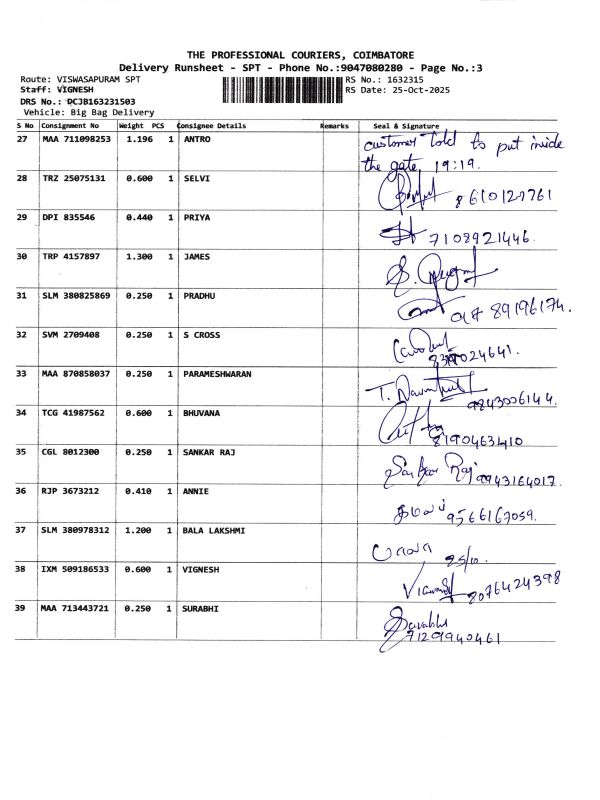 THE PROFESSIONAL COURIERS, COIMBATORE
Delivery Runsheet - SPT - Phone No.:9047080280 - Page No.:3
Route: VISWASAPURAM SPT RS No.: 1632315
Staff: VIGNESH RS Date: 25-Oct-2025
DRS No.: DCJB163231503
Vehicle: Big Bag Delivery
S No Consignment No Weight PCS Consignee Details Remarks Seal & Signature
27 MAA 711098253 1.196 1 ANTRO customer told to put inside
the gate, 19:19.
28 TRZ 25075131 0.600 1 SELVI 8610127761
29 DPI 835546 0.440 1 PRIYA 7108921446.
30 TRP 4157897 1.300 1 JAMES
31 SLM 380825869 0.250 1 PRADHU 89196174.
32 SVM 2709408 0.250 1 S CROSS
33 MAA 870858037 0.250 1 PARAMESHWARAN 9843006144.
34 TCG 41987562 0.600 1 BHUVANA 81904631410
35 CGL 8012300 0.250 1 SANKAR RAJ Sankar Raj 9943164017.
36 RJP 3673212 0.410 1 ANNIE 9566167059.
37 SLM 380978312 1.200 1 BALA LAKSHMI 25/10.
38 IXM 509186533 0.600 1 VIGNESH 8076424398
39 MAA 713443721 0.250 1 SURABHI Surabhi
7129940461